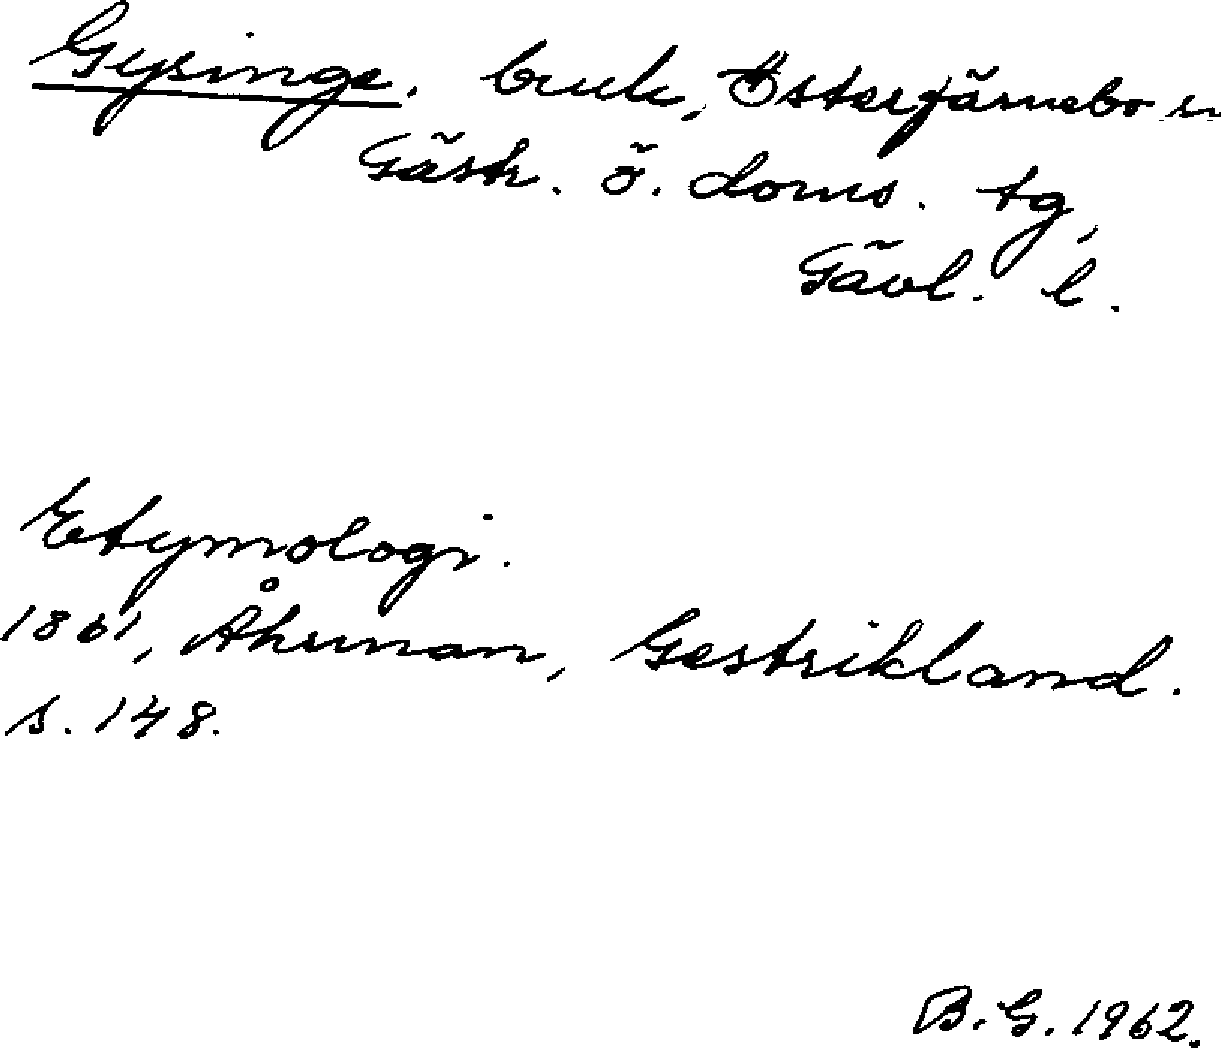 Gysinge. bruk, Österfärnebo sn
Gästr. ö. doms. tg,
Gävl. l.
Etymologi.
1861, Åhrman, Gestrikland.
s. 148.
B. G. 1962.